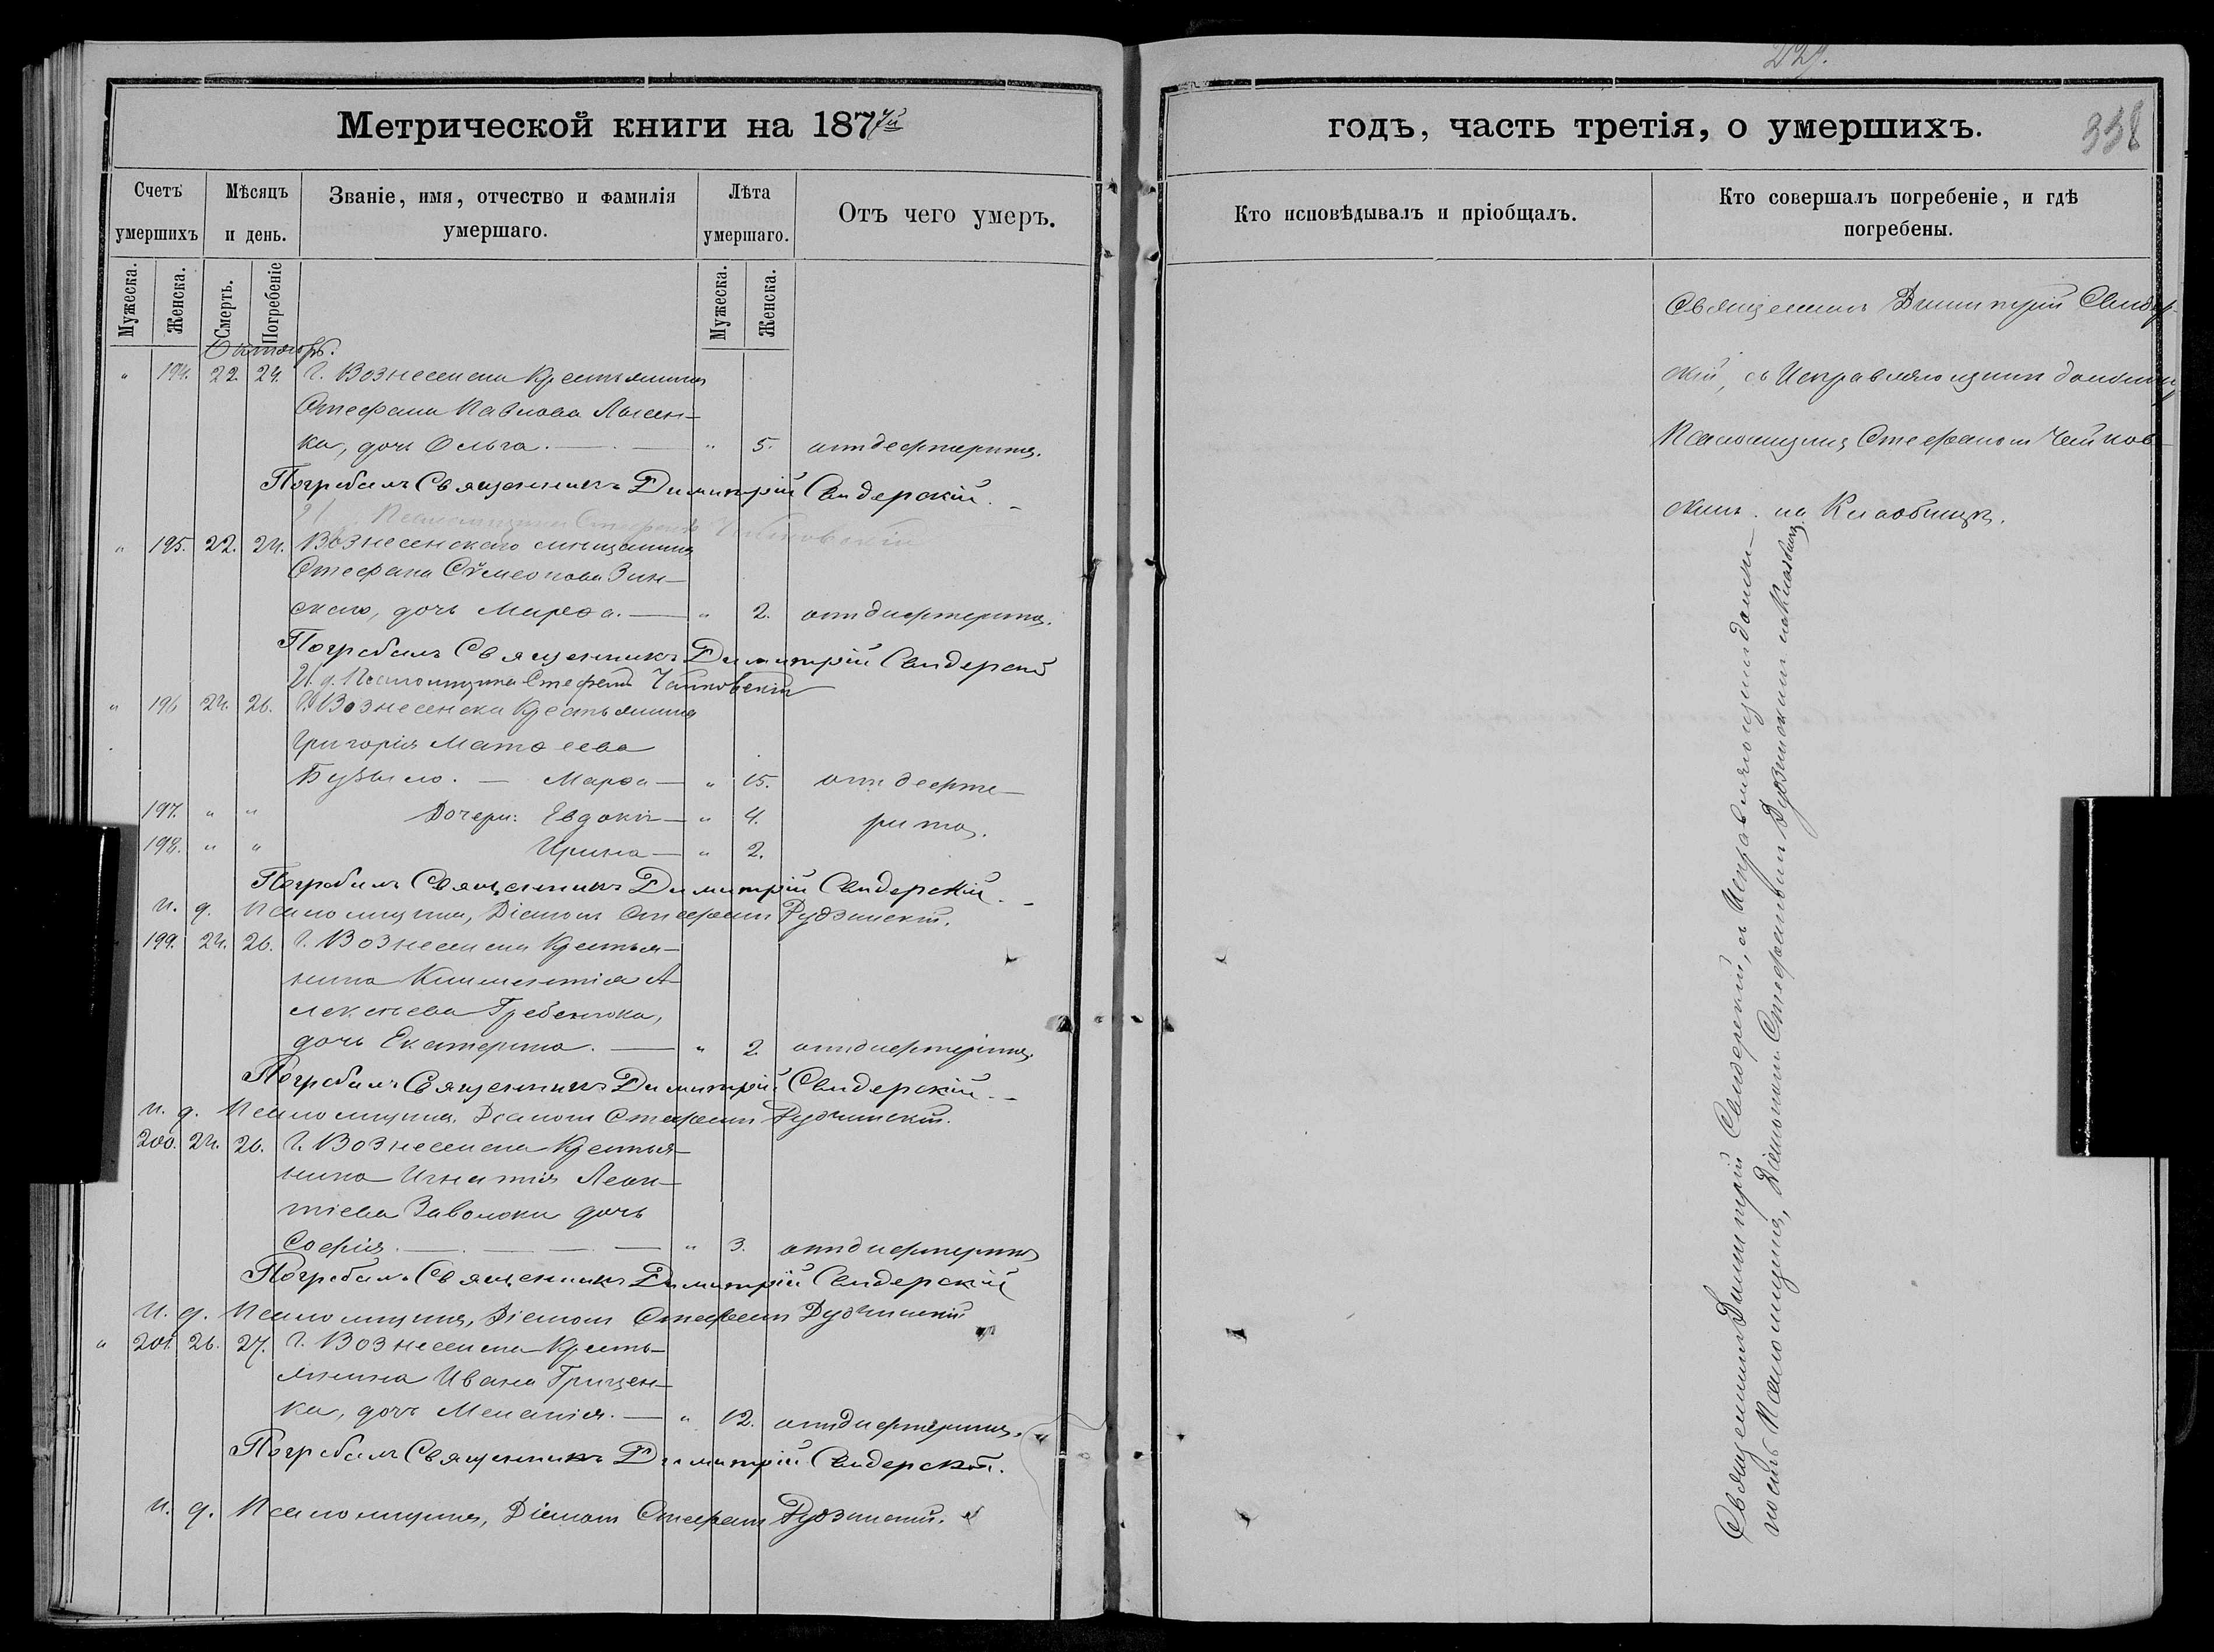 Метрической книги на 1877й
Счетъ умершихъ
Мѣсяцъ и день.
Званіе, имя, отчество и фамилія умершаго.
Лѣта умершаго.
Отъ чего умеръ.
Мужеска.
Женска.
Смерть.
Погребеніе
Мужеска.
Женска.
Октябрь.
" 194. 22. 24. Г. Вознесенска Крестьянина
Стефана Павлова Лысен-
ка, дочь Ольга. " 5. отъ дефтерита.
Погребалъ Священникъ Димитрій Свидерскій.
Псаломщика Стефанъ Чайковскій
" 195. 22. 24. Вознесенскаго мѣщанина
Стефана Сѵмеонова Зин-
скаго, дочь Марѳа. " 2. отъ дифтерита.
Погребалъ Священникъ Димитрій Свидерскій
И. д. Псаломщика Стефанъ Чайковскій
" 196 24. 26. Г. Вознесенска Крестьянина
Григорія Матѳеева
Бузыло. Марѳа " 15. отъ дефте-
197. " " Дочери: Евдокія " 4. рита.
198. " " Ирина " 2.
Погребалъ Священникъ Димитрій Свидерскій.
И. д. Псаломщика, Діаконъ Стефанъ Рудзинскій.
199. 24. 26. Г. Вознесенска Крестья-
нина Климентія А-
лексѣева Гребенюка,
дочь Екатерина. " 2. отъ дифтерита.
Погребалъ Священникъ Димитрій Свидерскій.
И. д. Псаломщика, Діаконъ Стефанъ Рудзинскій.
200. 24. 26. Г. Вознесенска Крестья-
нина Игнатія Леон-
тіева Заволоки дочь
Софія. " 3. отъ дифтерита
Погребалъ Священникъ Димитрій Свидерскій
И. д. Псаломщика, Діаконъ Стефанъ Рудзинскій
" 201. 26. 27. Г. Вознесенска Кресть-
янина Ивана Грицен-
ка, дочь Меланія. " 12. отъ дифтерита.
Погребалъ Священникъ Димитрій Свидерскій.
И. д. Псаломщика, Діаконъ Стефанъ Рудзинскій.
годъ, часть третія, о умершихъ.
338
Кто исповѣдывалъ и пріобщалъ.
Кто совершалъ погребеніе, и гдѣ погребены.
Священникъ Димитрій Свидер-
скій, съ Исправляющимъ должн.
Псаломщика Стефаномъ Чайков-
скимъ на Кладбищѣ.
Священникъ Димитрій Свидерскій, съ Исправляющимъ долж-
ность Псаломщика, Діакономъ Стефаномъ Рудзинскимъ на Кладбищѣ